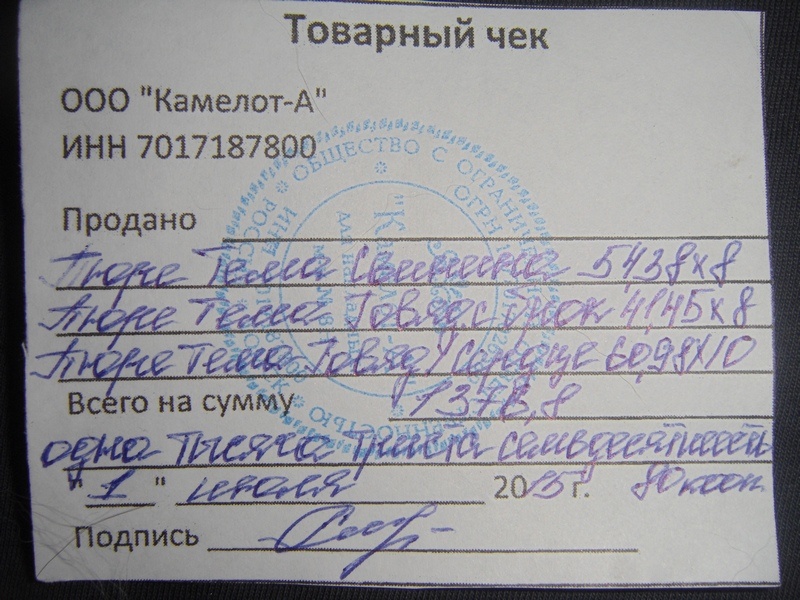 Товарный чек
ООО "Камелот-А"
ИНН 7017187800
Продано
Пюре Тема Свинина 54,38х8
Пюре Тема Говяд с брок 41,45х8
Пюре Тема Говяд/сердце 60,98х10
Всего на сумму 1376,8
одна тысяча триста семьдесят шесть
"1" июля 2015 г. 80 коп.
Подпись
ОБЩЕСТВО С ОГРАНИЧЕН
ОГРН